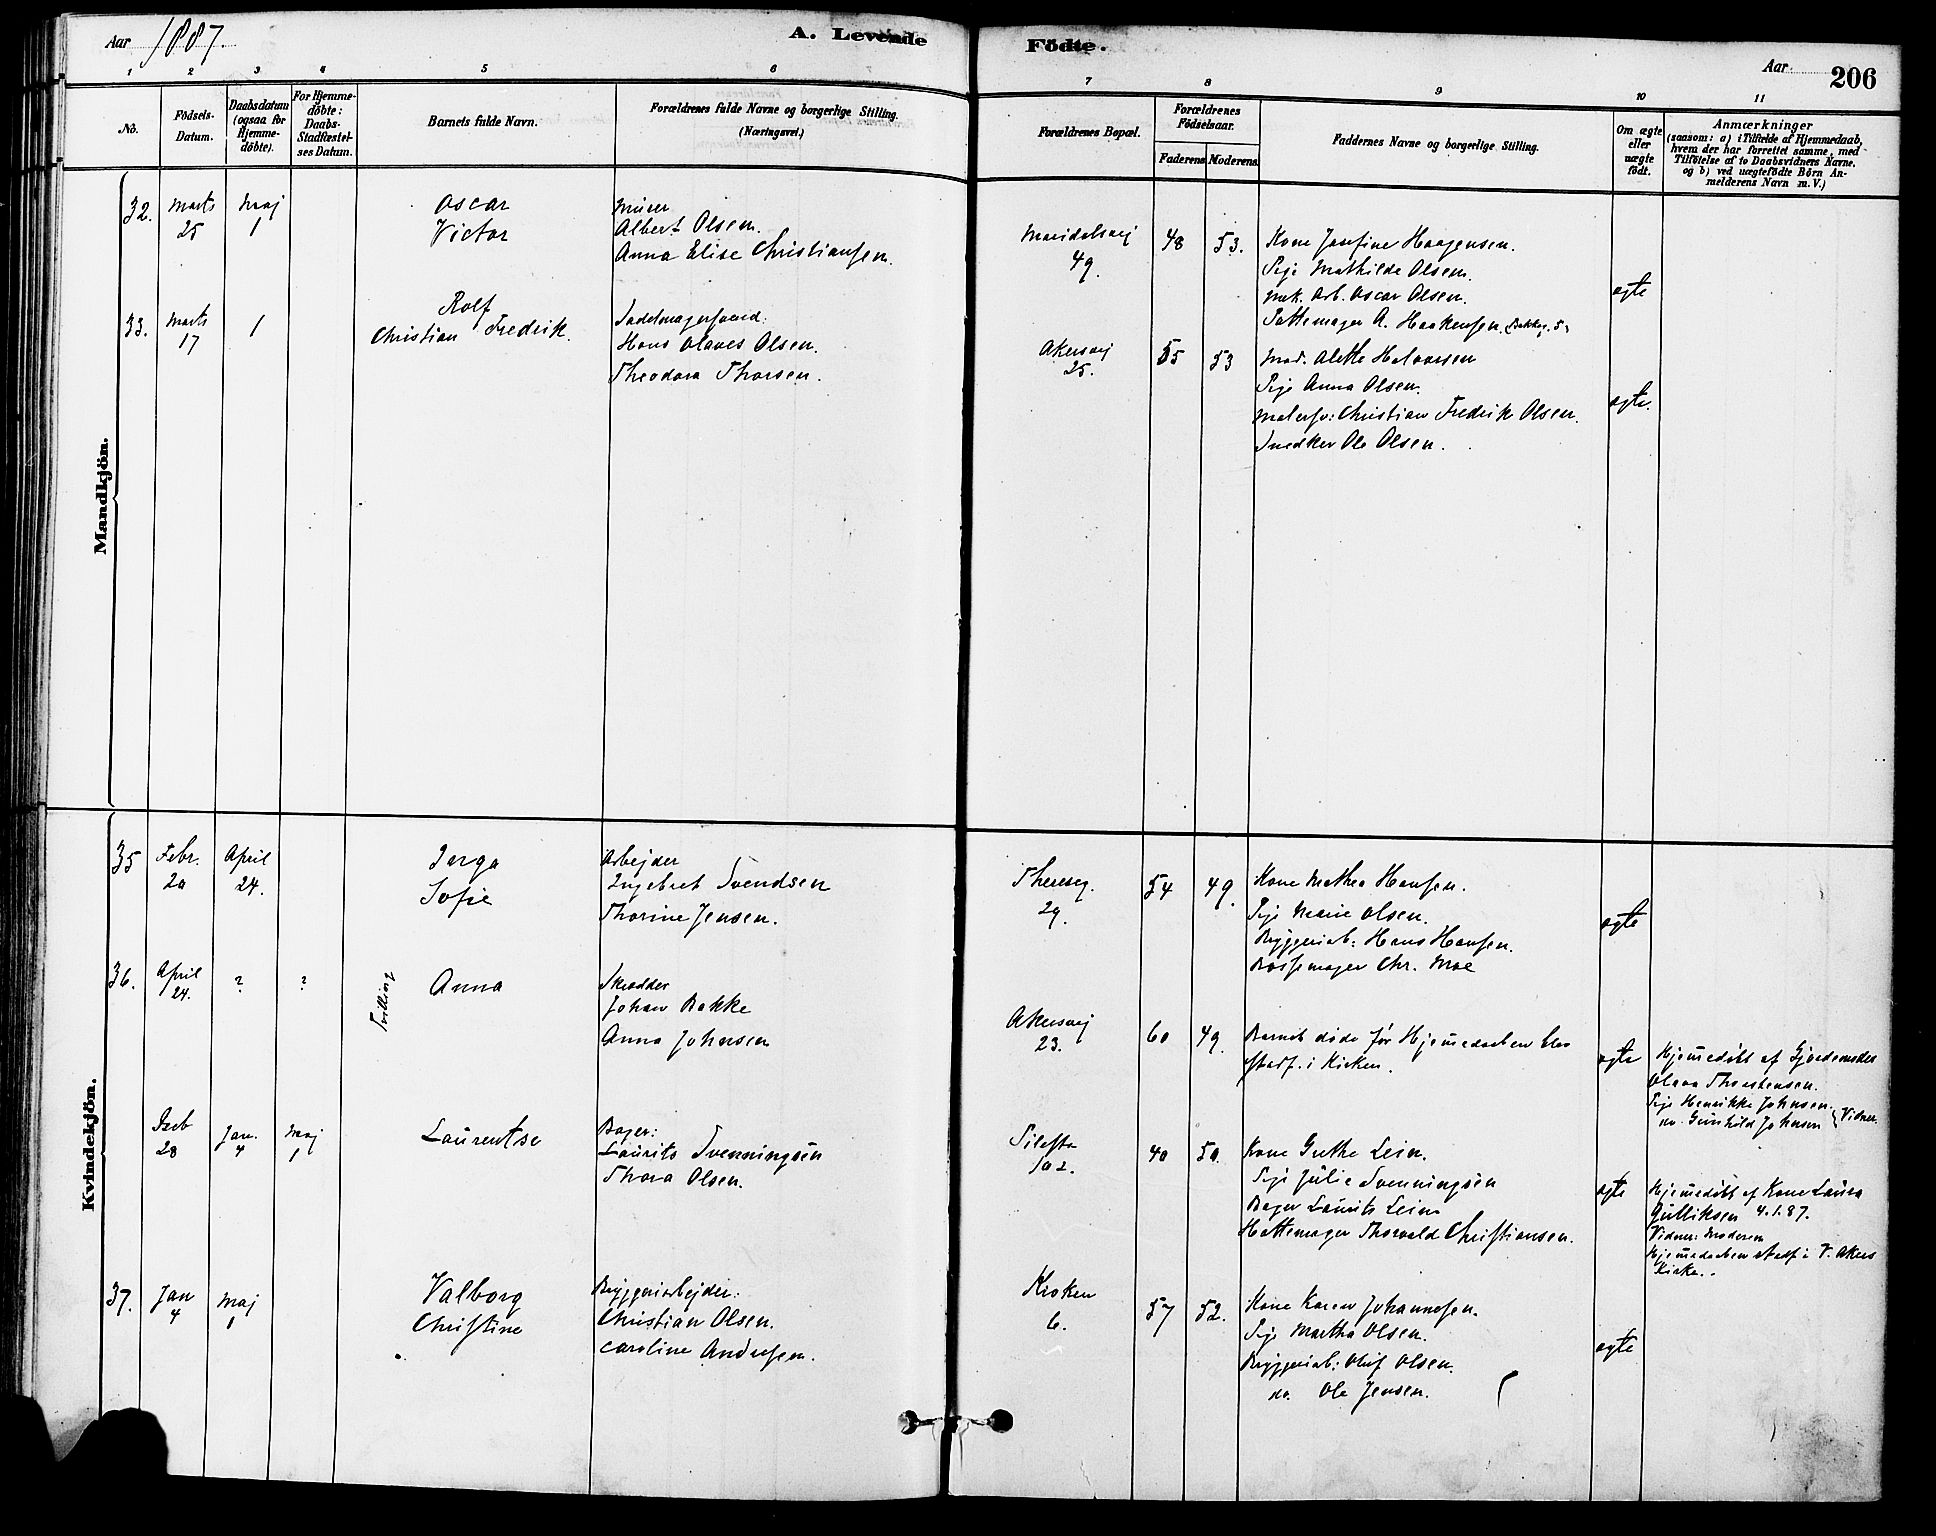 Aar 1887.
A. Levende
Födte.
Aar
206
1 2 3 4 5 6
7 8 9 10 11
No.
Födsels-
Datum.
Daabsdatum
(ogsaa for
Hjemme-
döbte).
For Hjemme-
döbte:
Daabs-
Stadfæstel-
ses Datum.
Barnets fulde Navn.
Forældrenes fulde Navne og borgerlige Stilling.
(Næringsvei.)
Forældrenes Bopæl.
Forældrenes
Födselsaar.
Faderens. Moderens.
Faddernes Navne og borgerlige Stilling.
Om ægte
eller
uægte
födt.
Anmærkninger
(saasom: a) i Tilfælde af Hjemmedaab,
hvem der har forrettet samme, med
Tilföielse af to Daabsvidners Navne,
og b) ved uægtefödte Börn An-
melderens Navn m. V.)
Mandkjön.
32.
Marts
25
Maj
1
Oscar
Victor
Murer
Albert Olsen.
Anna Elise Christiansen.
Maridalsvej
49.
48
53.
Kone Josefine Haagensen.
Pige Mathilde Olsen.
Mek. Arb. Oscar Olsen.
Pottemager A. Haakensen.
ægte
33.
Marts
17
1
Rolf
Christian Fredrik.
Sadelmagersvend:
Hans Olaves Olsen.
Theodora Thorsen.
Akersvej
25.
55
53
Mad. Alette Halvorsen
Pige Anna Olsen.
Malersv: Christian Fredrik Olsen.
Snedker Ole Olsen.
ægte.
Kvindekjön.
35
Febr.
20
April
24.
Inga
Sofie
Arbejder
Ingebret Svendsen
Thorine Jensen.
Thereseg.
29.
54
49.
Kone Mathea Hansen.
Pige Marie Olsen.
Bryggeriarb: Hans Hansen.
Børstemager Chr. Moe
ægte
36.
April
24.
?
?
Tvilling
Anna
Skrædder
Johan Bakke
Anna Johnsen
Akersvej
23.
60
49.
Barnet døde før Hjemmedaaben blev
stadf. i Kirken.
ægte
Hjemmedøbt af Gjordemoder
Olava Thorstensen.
Pige Henrikke Johnsen.
do. Gunhild Johnsen } Vidner.
Decb
28
Jan.
4
Maj
1
Laurentse
Bager:
Laurits Svenningsen
Thora Olsen.
40
50.
Kone Grethe Lein.
Pige Julie Svenningsen
Bager Laurits Lein
Hattemager Thorvald Christiansen.
ægte
Hjemmedøbt af Kone Laura
Gulliksen 4.1.87.
Vidner: Moderen
Hjemmedaaben stadf i V. Akers
Kirke.
37.
Jan
4
Maj
1
Valborg
Christine
Bryggeriarbejder:
Christian Olsen.
Caroline Andersen.
Kroken
6.
57
52.
Kone Karen Johannesen.
Pige Martha Olsen.
Bryggeriarb: Oluf Olsen.
do. Ole Jensen.
ægte